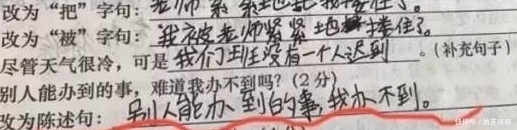 改为“把”字句：老师紧紧地把我搂住了。
改为“被”字句：我被老师紧紧地搂住了。
尽管天气很冷，可是我们班没有一个人迟到。(补充句子)
别人能办到的事，难道我办不到吗？(2分)
改为陈述句：别人能办到的事，我办不到。